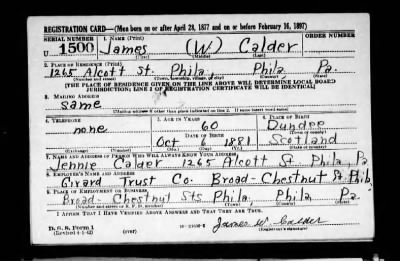 REGISTRATION CARD—(Men born on or after April 28, 1877 and on or before February 16, 1897)
SERIAL NUMBER 1. NAME (Print) ORDER NUMBER
U 1500 James (W) Calder
(First) (Middle) (Last)
2. PLACE OF RESIDENCE (Print)
1265 Alcott St. Phila, Phila, Pa.
(Number and street) (Town, township, village, or city) (County) (State)
[THE PLACE OF RESIDENCE GIVEN ON THE LINE ABOVE WILL DETERMINE LOCAL BOARD
JURISDICTION; LINE 2 OF REGISTRATION CERTIFICATE WILL BE IDENTICAL]
3. MAILING ADDRESS
same
[Mailing address if other than place indicated on line 2. If same insert word same]
4. TELEPHONE 5. AGE IN YEARS 6. PLACE OF BIRTH
none 60 Dundee
DATE OF BIRTH (Town or county)
Oct 6 1881 Scotland
(Exchange) (Number) (Mo.) (Day) (Yr.) (State or country)
7. NAME AND ADDRESS OF PERSON WHO WILL ALWAYS KNOW YOUR ADDRESS
Jennie Calder 1265 Alcott St. Phila Pa
8. EMPLOYER'S NAME AND ADDRESS
Girard Trust Co. Broad-Chestnut St. Phila
9. PLACE OF EMPLOYMENT OR BUSINESS
Broad-Chestnut Sts Phila, Phila, Pa.
(Number and street or R. F. D. number) (Town) (County) (State)
I AFFIRM THAT I HAVE VERIFIED ABOVE ANSWERS AND THAT THEY ARE TRUE.
D. S. S. Form 1
(Revised 4-1-42) (over) James W Calder
(Registrant's signature)